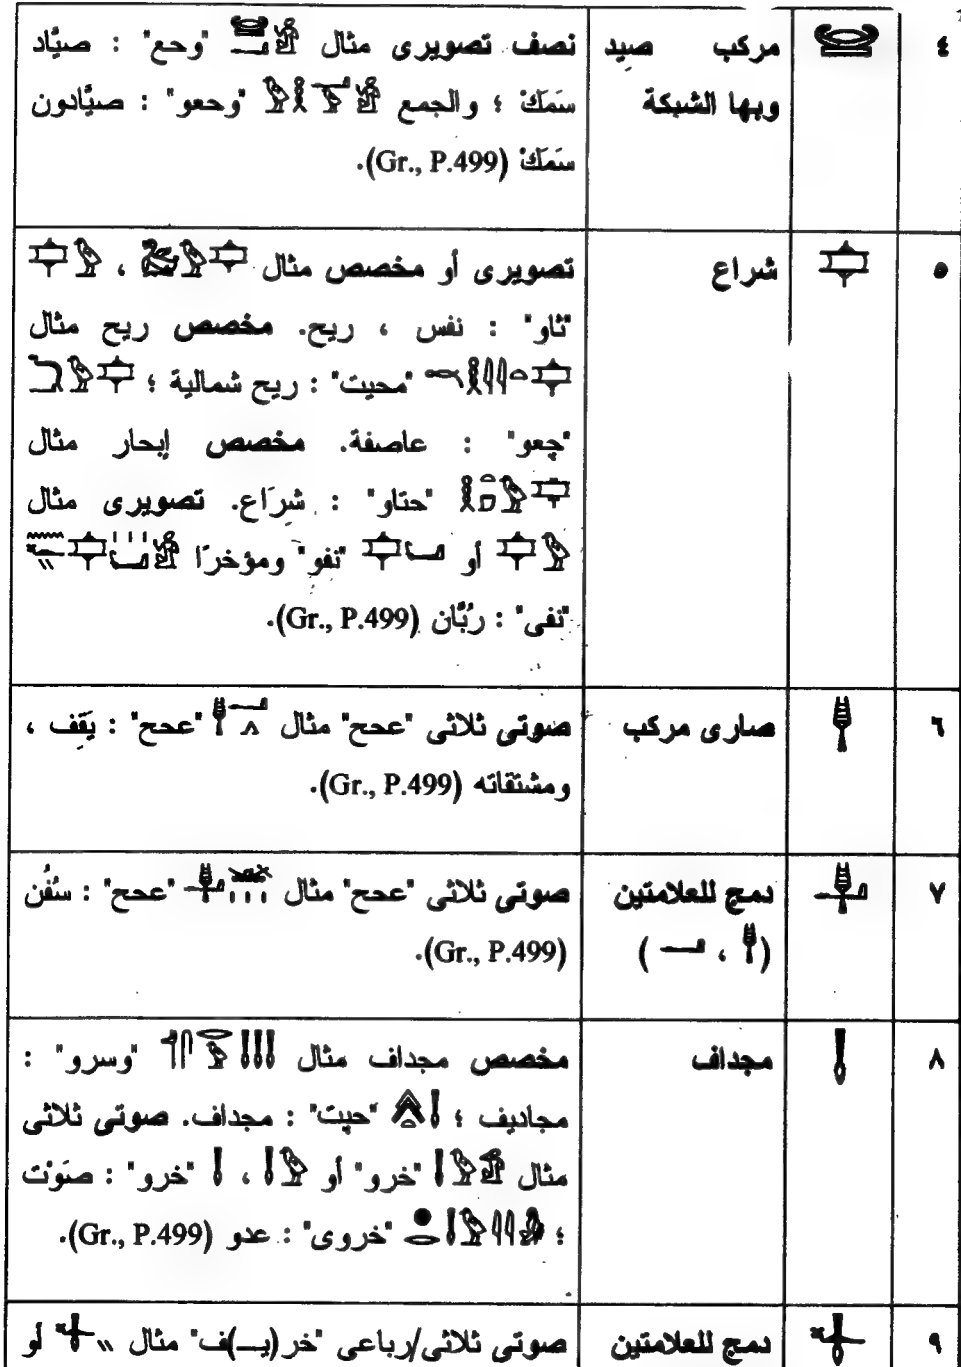 ٤ مركب صيد وبها الشبكة
نصف تصويرى مثال "وحع" : صيَّاد
سَمَكْ ؛ والجمع "وحعو" : صيَّادون
سَمَكْ (Gr., P.499).
٥ شراع
تصويرى أو مخصص مثال ،
"ثاو" : نفس ، ريح. مخصص ريح مثال
"محيت" : ريح شمالية ؛
"چعو" : عاصفة. مخصص إبحار مثال
"حتاو" : شرَاع. تصويرى مثال
أو "نفو" ومؤخرًا
"نفى" : رُبَّان (Gr., P.499).
٦ صارى مركب
صوتى ثلاثى "عحع" مثال "عحع" : يَقِف ،
ومشتقاته (Gr., P.499).
٧ دمج للعلامتين
( ، )
صوتى ثلاثى "عحع" مثال "عحع" : سُفُن
(Gr., P.499).
٨ مجداف
مخصص مجداف مثال "وسرو" :
مجاديف ؛ "حپت" : مجداف. صوتى ثلاثى
مثال "خرو" أو ، "خرو" : صَوْت
؛ "خروى" : عدو (Gr., P.499).
٩ دمج للعلامتين
صوتى ثلاثى/رباعى "خر(يـ)ف" مثال أو